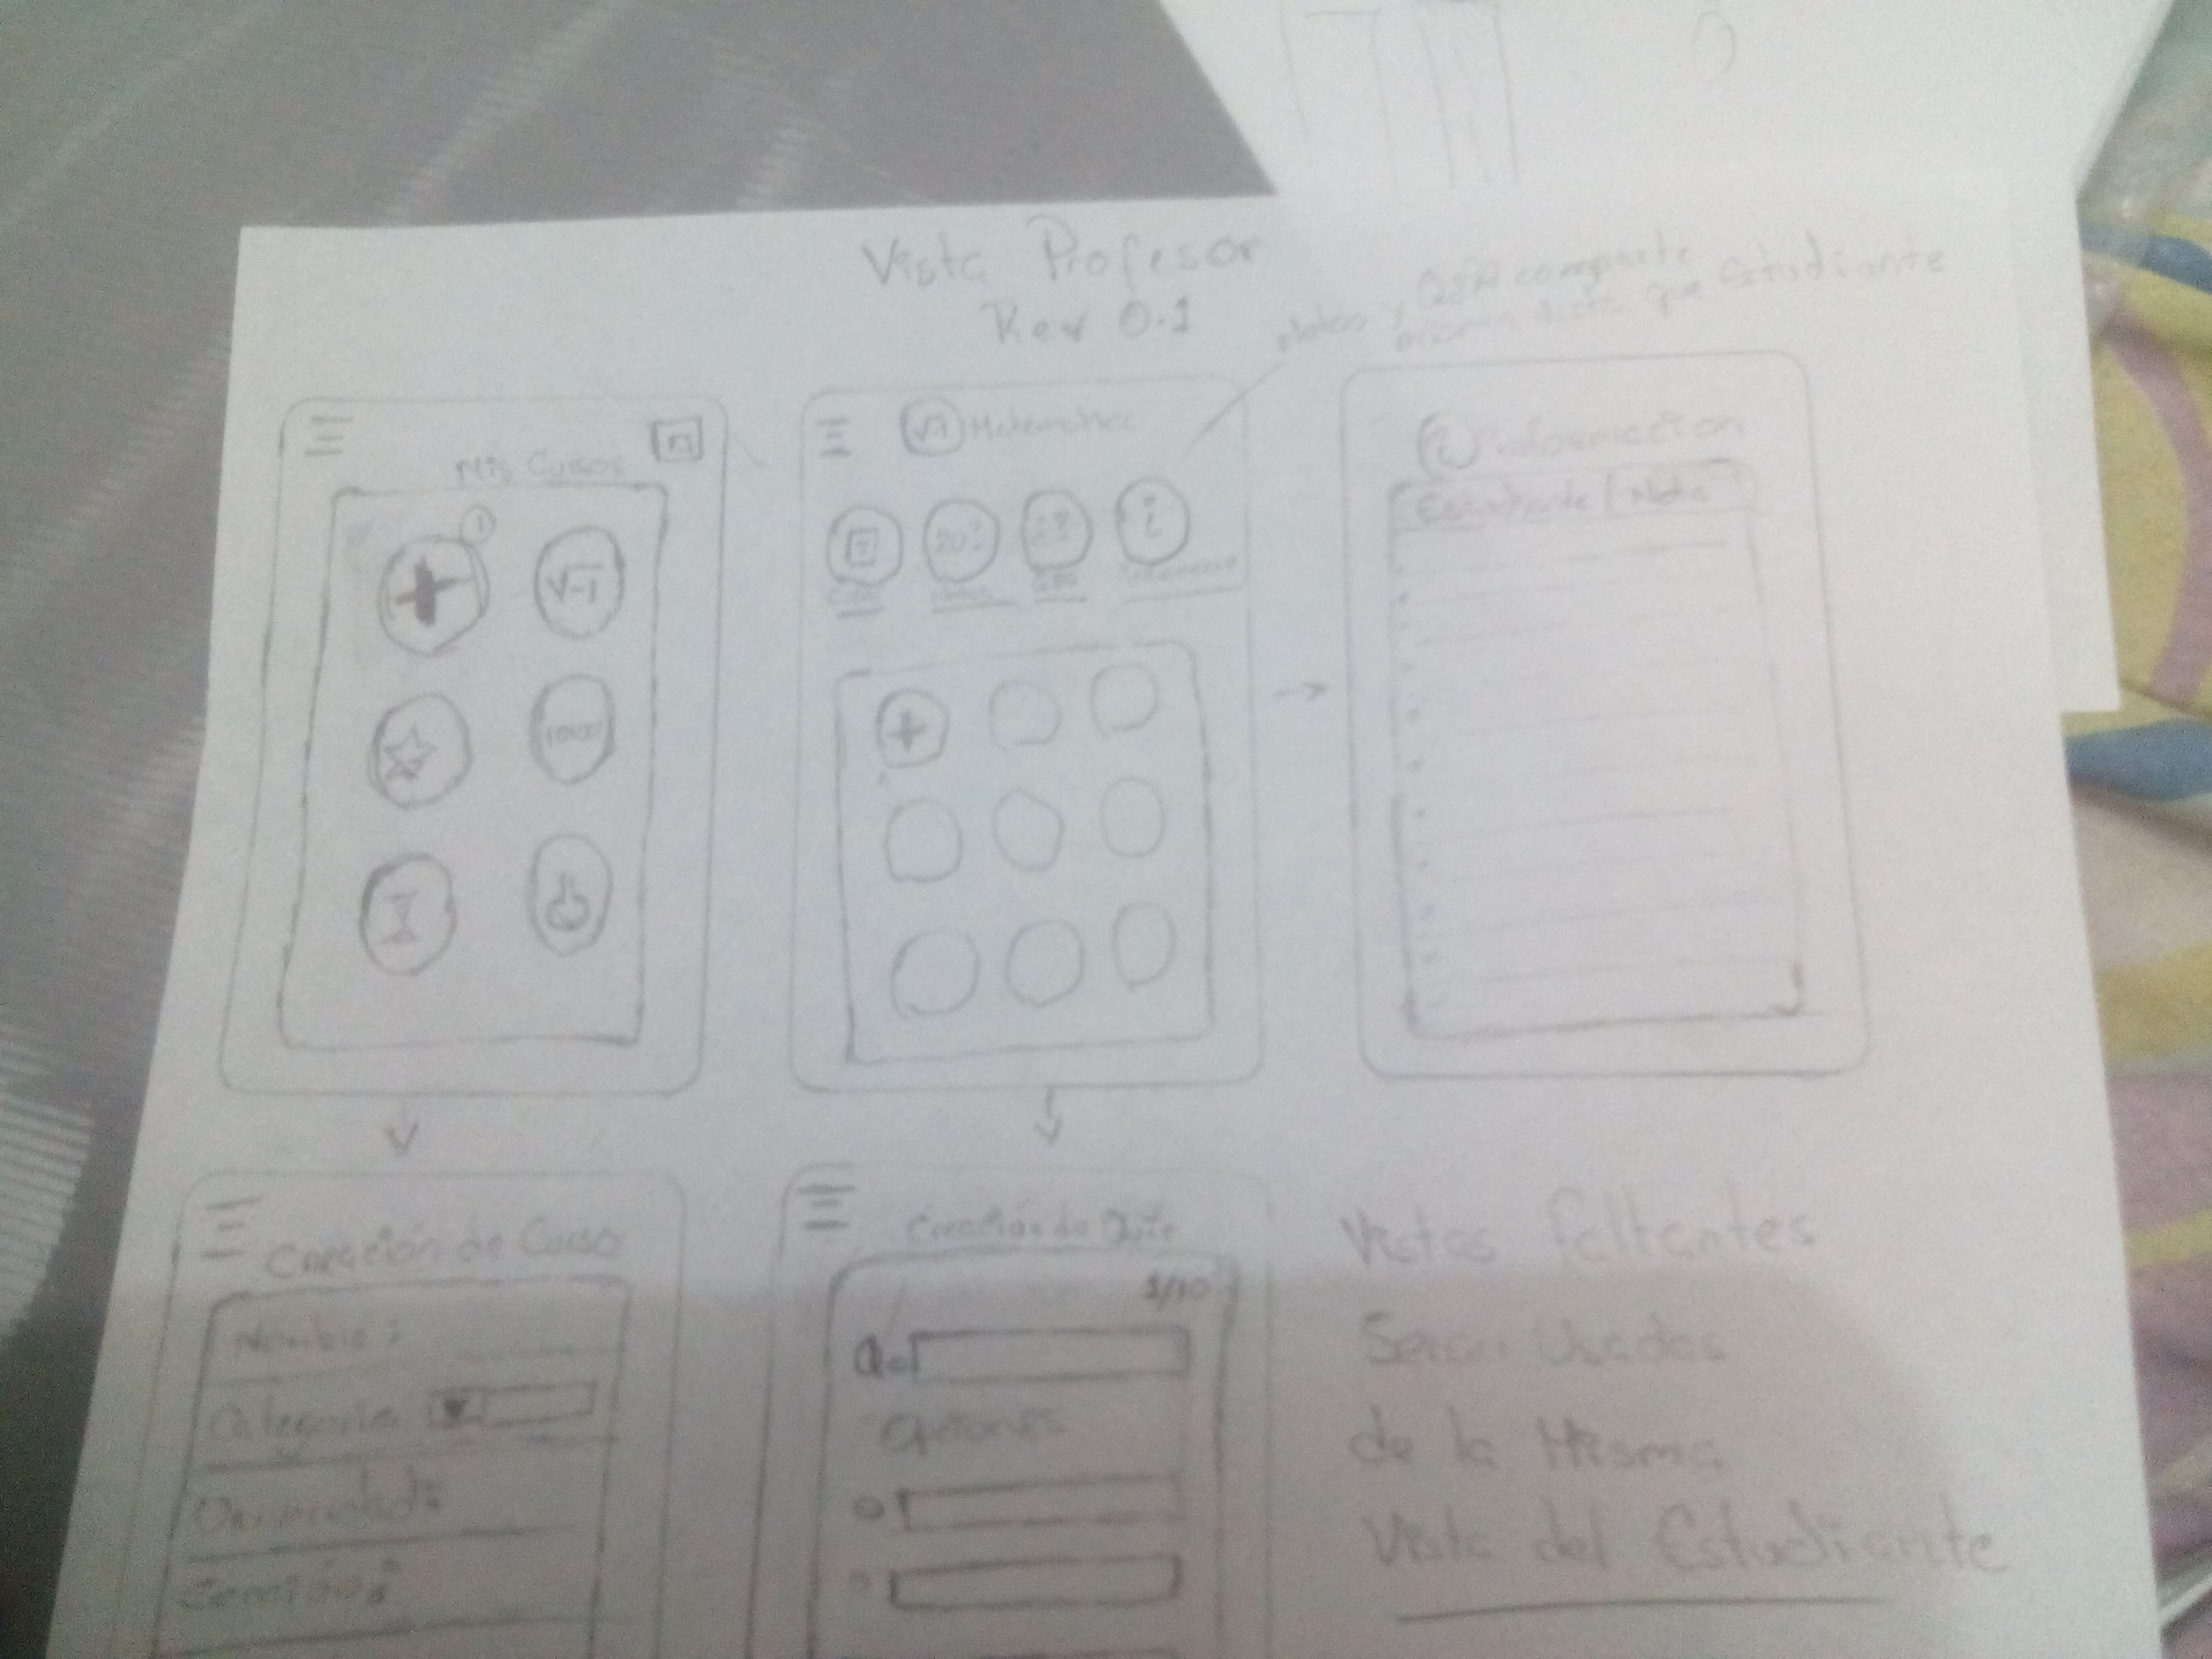 Vista Profesor
Rev 0.1
Notas y Q&A comparte
misma vista que Estudiante
Mis Cursos
1
√-1
√-1 Matematica
20
i
Notas
i Informacion
Estudiante | Nota
Creación de Curso
Nombre:
Categoria
Universidad:
Creación de Quiz
1/10
Q.
Opciones
Vistas faltantes
Seran Usadas
de la Misma
Vista del Estudiante